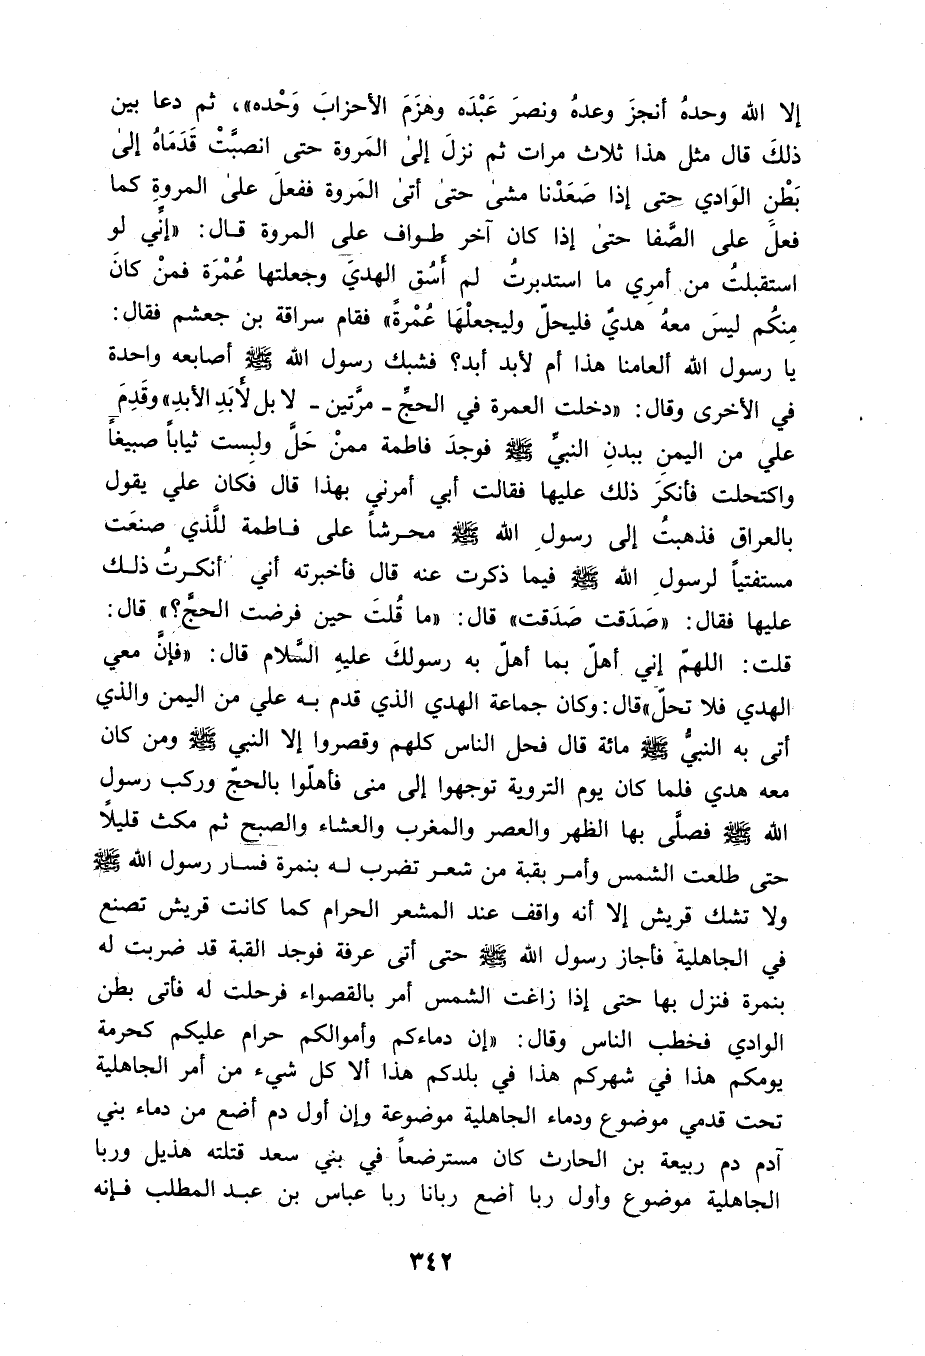 إلا الله وحدهُ أنجزَ وعدهُ ونصرَ عَبْدَه وهزَمَ الأحزابَ وَحْده»، ثم دعا بين
ذلكَ قال مثل هذا ثلاث مرات ثم نزلَ إلىٰ المَروة حتى انصبَّتْ قَدَمَاهُ إلىٰ
بَطْنِ الوَادي حتى إذا صَعَدْنا مشىٰ حتىٰ أتىٰ المَروة ففعلَ علىٰ المروةِ كما
فعلَ على الصَّفا حتىٰ إذا كان آخر طواف على المروة قال: «إنَّي لو
استقبلتُ من أمرِي ما استدبرتُ لم أَسُق الهديَ وجعلتها عُمْرَة فمنْ كانَ
مِنكُم ليسَ معهُ هديٌ فليحلّ وليجعلْهَا عُمْرةً» فقام سراقة بن جعشم فقال:
يا رسول الله ألعامنا هذا أم لأبد أبد؟ فشبك رسول الله ﷺ أصابعه واحدة
في الأخرى وقال: «دخلت العمرة في الحجِّ ـ مرَّتين ـ لا بل لأَبَدِ الأبدِ» وقَدِمَ
علي من اليمنِ ببدنِ النبيِّ ﷺ فوجدَ فاطمة ممنْ حَلَّ ولبِست ثياباً صبيغاً
واكتحلت فأنكرَ ذلك عليها فقالت أبي أمرني بهذا قال فكان علي يقول
بالعراق فذهبتُ إلى رسولِ الله ﷺ محرشاً على فاطمة للَّذي صنعَت
مستفتياً لرسول الله ﷺ فيما ذكرت عنه قال فأخبرته أني أنكرتُ ذلك
عليها فقال: «صَدَقت صَدَقت» قال: «ما قُلتَ حين فرضت الحجَّ؟» قال:
قلت: اللهمّ إني أهلّ بما أهلّ به رسولكَ عليهِ السَّلام قال: «فإنَّ معي
الهدي فلا تحلّ» قال: وكان جماعة الهدي الذي قدم به علي من اليمن والذي
أتى به النبيُّ ﷺ مائة قال فحل الناس كلهم وقصروا إلا النبي ﷺ ومن كان
معه هدي فلما كان يوم التروية توجهوا إلى منى فأهلّوا بالحجّ وركب رسول
الله ﷺ فصلَّى بها الظهر والعصر والمغرب والعشاء والصبح ثم مكث قليلاً
حتى طلعت الشمس وأمر بقبة من شعر تضرب له بنمرة فسار رسول الله ﷺ
ولا تشك قريش إلا أنه واقف عند المشعر الحرام كما كانت قريش تصنع
في الجاهلية فأجاز رسول الله ﷺ حتى أتى عرفة فوجد القبة قد ضربت له
بنمرة فنزل بها حتى إذا زاغت الشمس أمر بالقصواء فرحلت له فأتى بطن
الوادي فخطب الناس وقال: «إن دماءكم وأموالكم حرام عليكم كحرمة
يومكم هذا في شهركم هذا في بلدكم هذا ألا كل شيء من أمر الجاهلية
تحت قدمي موضوع ودماء الجاهلية موضوعة وإن أول دم أضع من دماء بني
آدم دم ربيعة بن الحارث كان مسترضعاً في بني سعد قتلته هذيل وربا
الجاهلية موضوع وأول ربا أضع ربانا ربا عباس بن عبد المطلب فإنه
٣٤٢